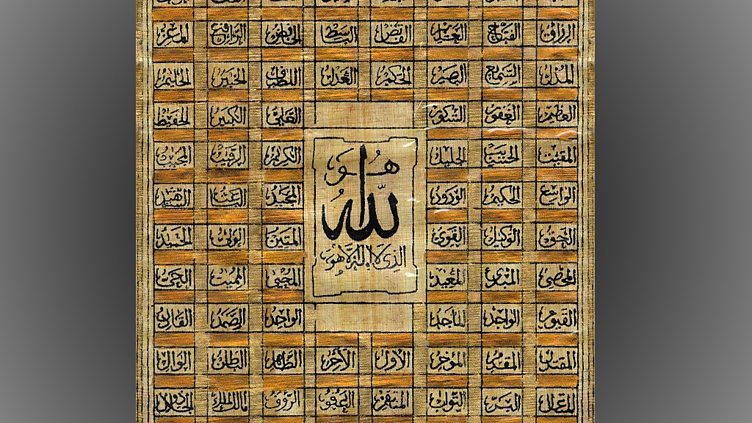 الرزاق الفتاح العليم القابض الباسط الخافض الرافع المعز
المذل السميع البصير الحكم العدل اللطيف الخبير الحليم
العظيم الغفور الشكور العلي الكبير الحفيظ
المقيت الحسيب الجليل الكريم الرقيب المجيب
الواسع الحكيم الودود المجيد الباعث الشهيد
الحق الوكيل القوي المتين الولي الحميد
المحصي المبدئ المعيد المحيي المميت الحي
القيوم الواجد الماجد الواحد الصمد القادر
المقتدر المقدم المؤخر الأول الآخر الظاهر الباطن الوالي
المتعال البر التواب المنتقم العفو الرؤف مالك الملك
هو
الله
الذي لا إله إلا هو